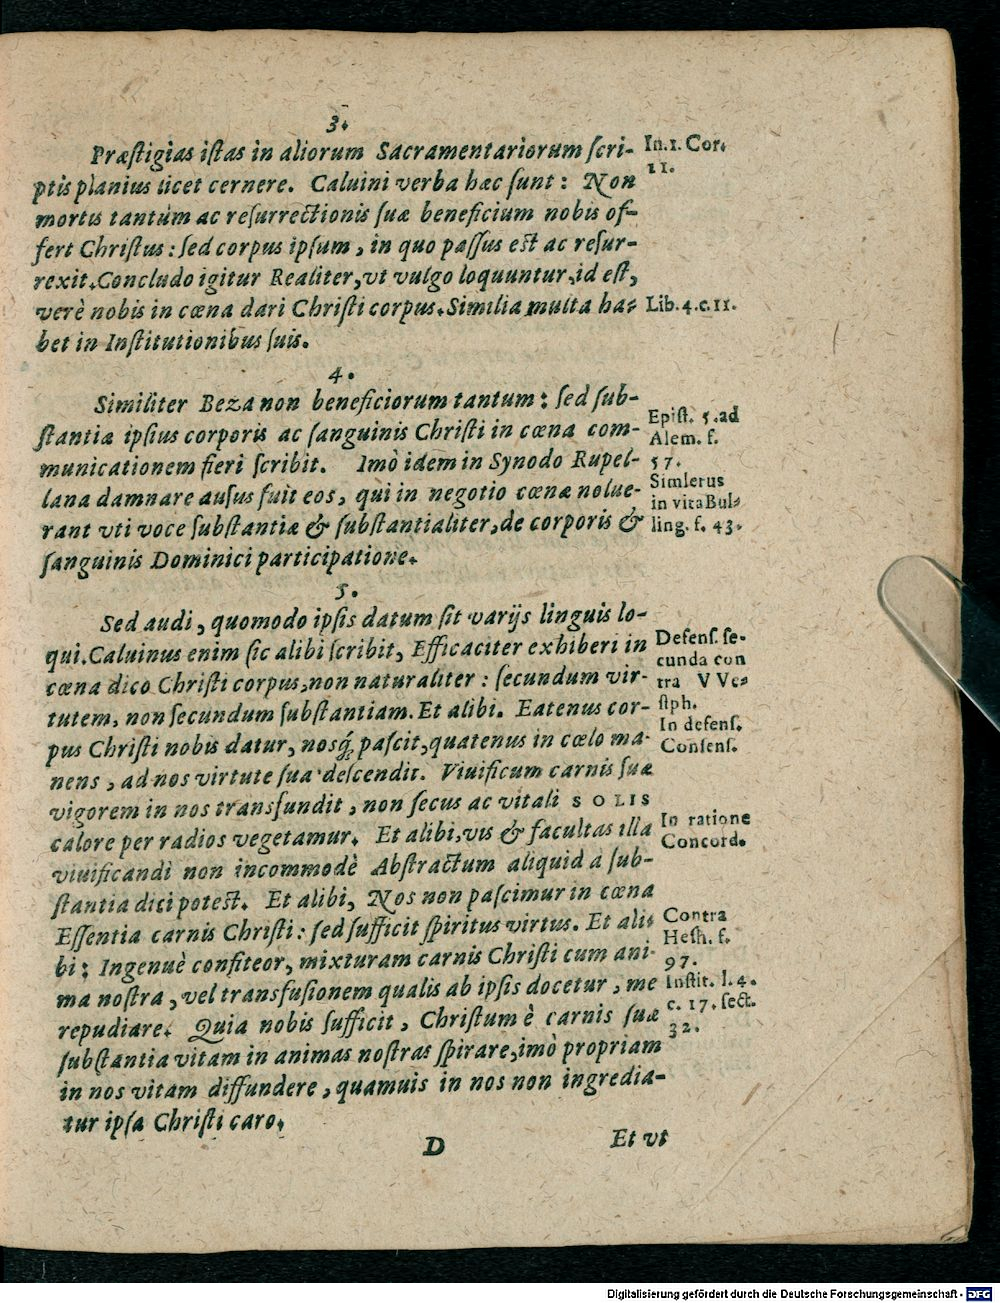 3.
Præstigias istas in aliorum Sacramentariorum scri-
ptis planius licet cernere. Caluini verba hæc sunt: Non
mortis tantùm ac resurrectionis suæ beneficium nobis of-
fert Christus: sed corpus ipsum, in quo passus est ac resur-
rexit. Concludo igitur Realiter, vt vulgo loquuntur, id est,
verè nobis in cœna dari Christi corpus. Similia multa ha-
bet in Institutionibus suis.
In.1. Cor.
11.
Lib.4.c.11.
4.
Similiter Beza non beneficiorum tantum: sed sub-
stantiæ ipsius corporis ac sanguinis Christi in cœna com-
municationem fieri scribit. Imò idem in Synodo Rupel-
lana damnare ausus fuit eos, qui in negotio cœnæ nolue-
rant vti voce substantiæ & substantialiter, de corporis &
sanguinis Dominici participatione.
Epist. 5. ad
Alem. f.
57.
Simlerus
in vita Bul-
ling. f. 43.
5.
Sed audi, quomodo ipsis datum sit varijs linguis lo-
qui. Caluinus enim sic alibi scribit, Efficaciter exhiberi in
cœna dico Christi corpus, non naturaliter: secundum vir-
tutem, non secundum substantiam. Et alibi. Eatenus cor-
pus Christi nobis datur, nosq́; pascit, quatenus in cœlo ma-
nens, ad nos virtute sua descendit. Viuificum carnis suæ
vigorem in nos transfundit, non secus ac vitali SOLIS
calore per radios vegetamur. Et alibi, vis & facultas illa
viuificandi non incommodè Abstractum aliquid à sub-
stantia dici potest. Et alibi, Nos non pascimur in cœna
Essentia carnis Christi: sed sufficit spiritus virtus. Et ali-
bi: Ingenuè confiteor, mixturam carnis Christi cum ani-
ma nostra, vel transfusionem qualis ab ipsis docetur, me
repudiare. Quia nobis sufficit, Christum è carnis suæ
substantia vitam in animas nostras spirare, imò propriam
in nos vitam diffundere, quamuis in nos non ingredia-
tur ipsa Christi caro.
Defens. se-
cunda con
tra VVe-
stph.
In defens.
Consens.
In ratione
Concord.
Contra
Hesh. f.
97.
Instit. l. 4.
c. 17. sect.
32.
D
Et vt
Digitalisierung gefördert durch die Deutsche Forschungsgemeinschaft - DFG